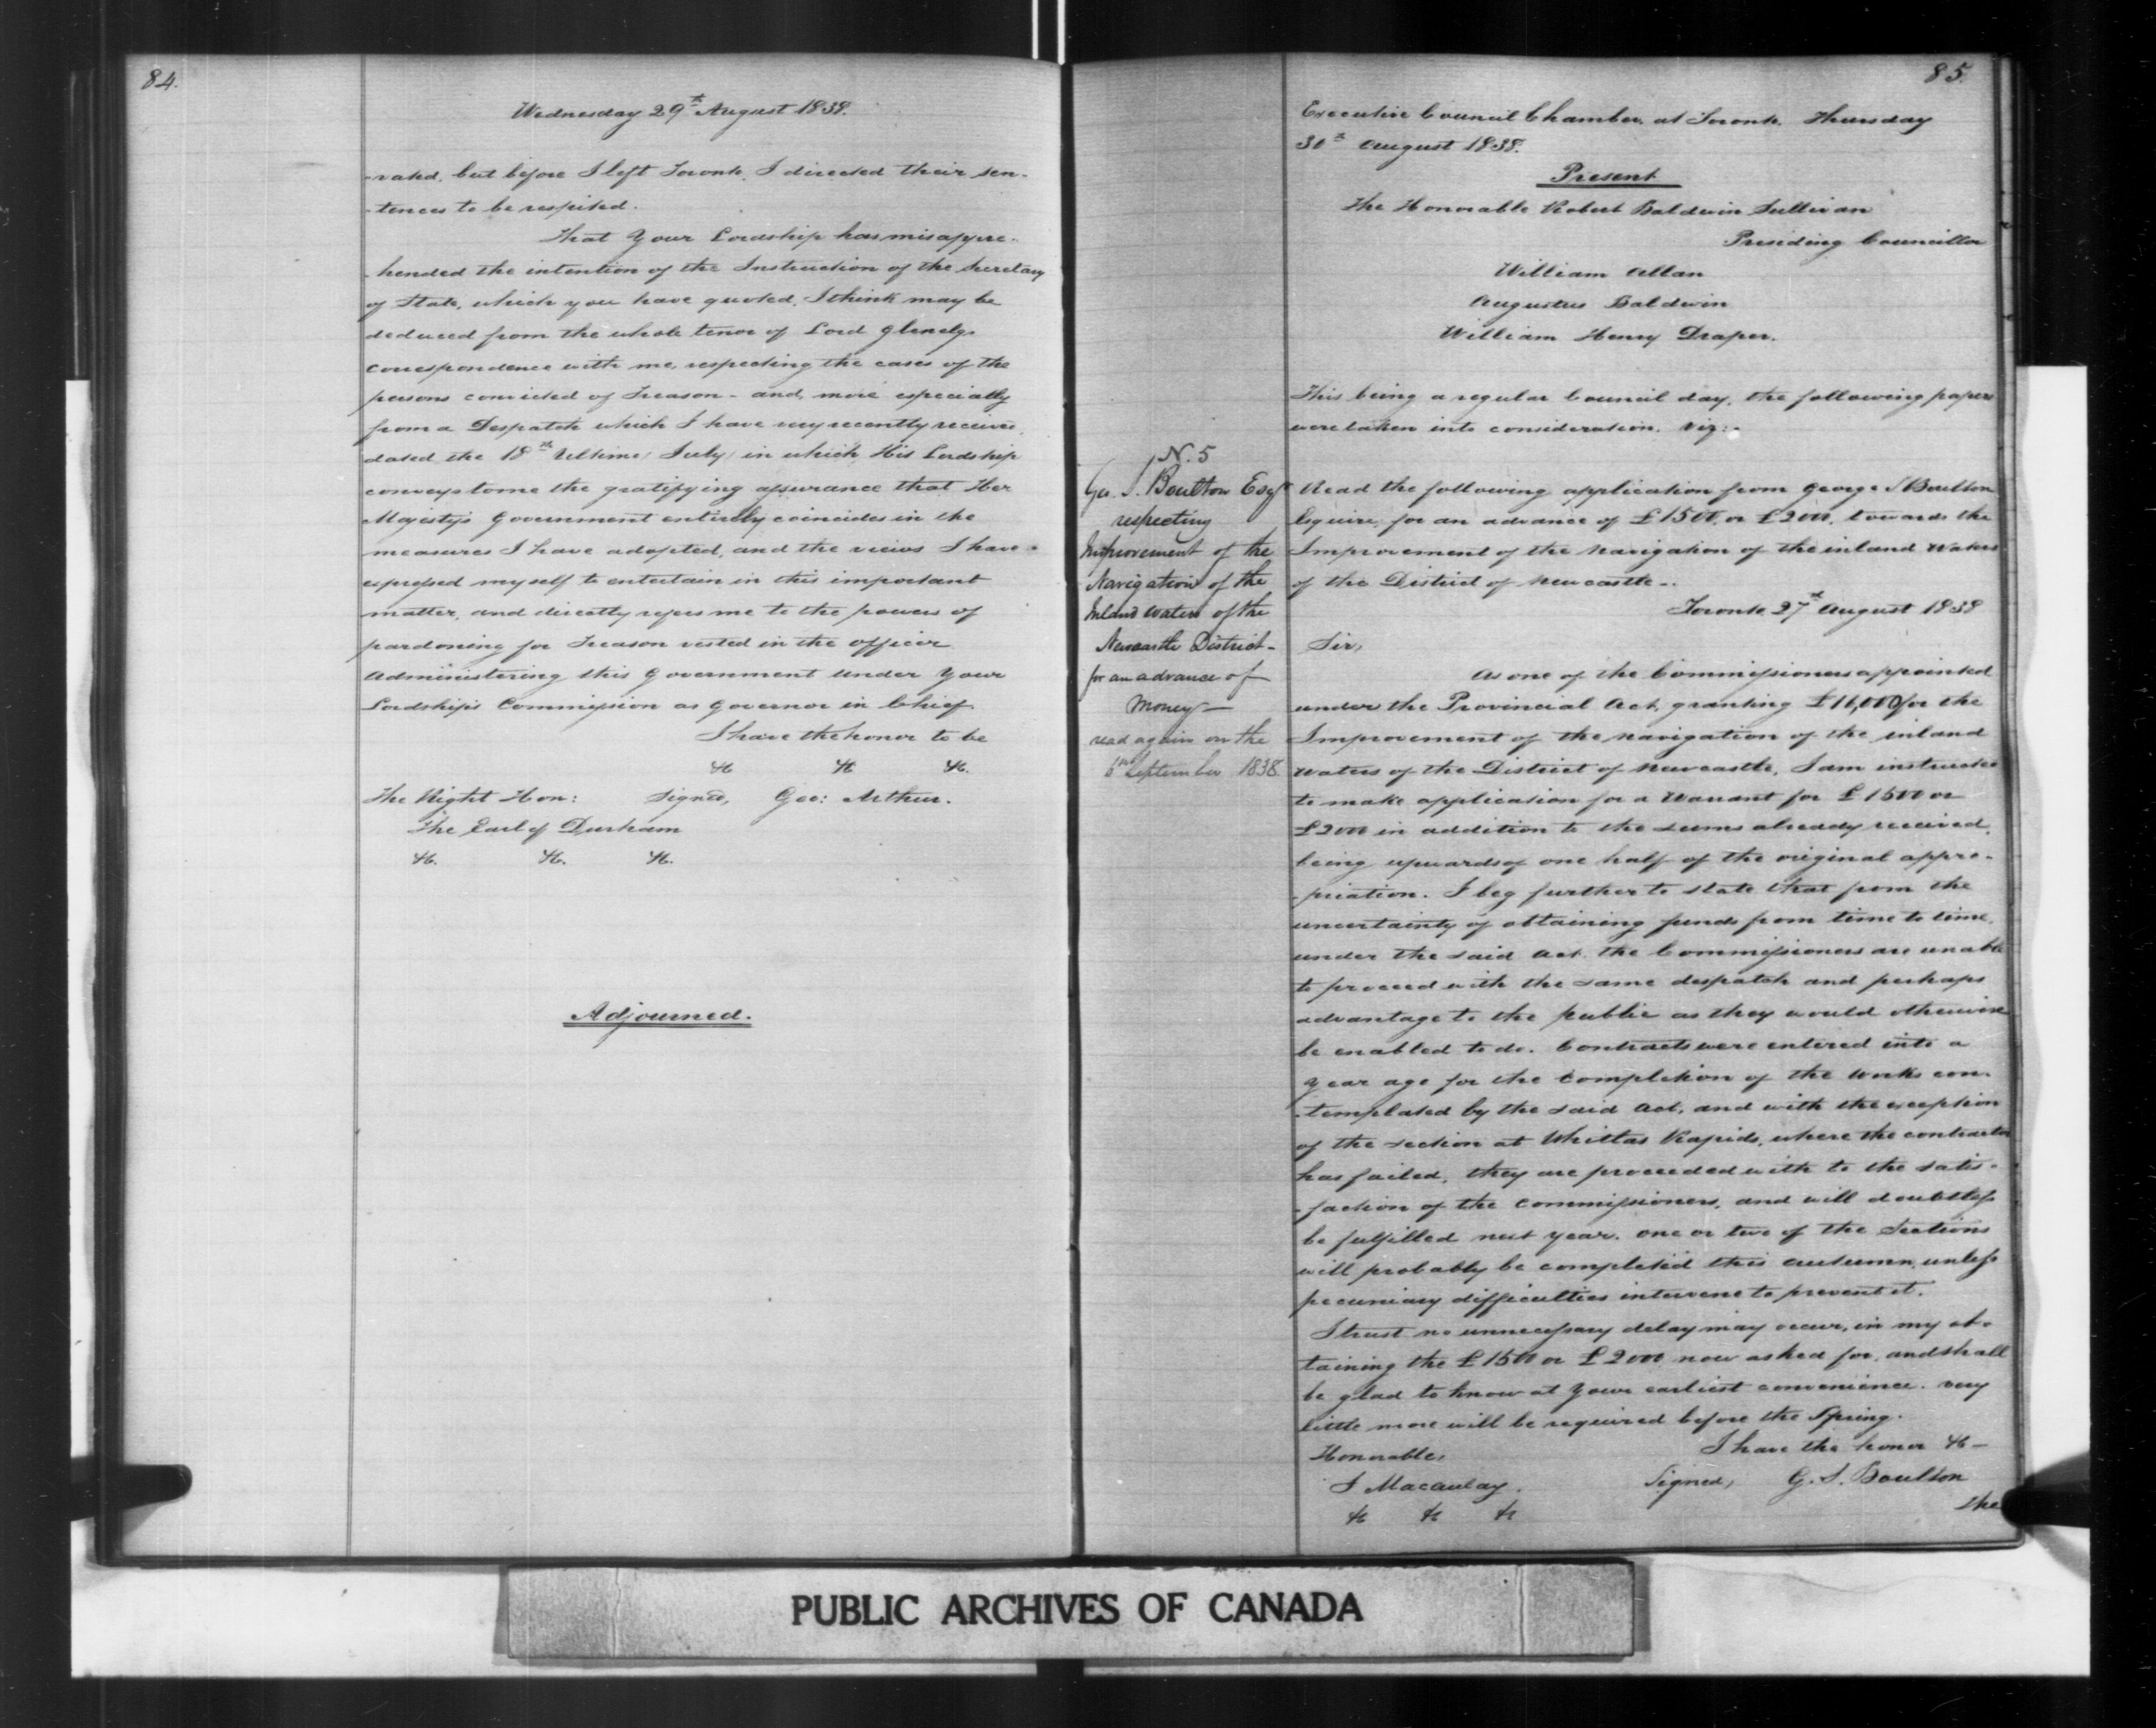 84.
Wednesday 29th August 1838.
-rated, but before I left Toronto, I directed their sen-
-tences to be respited.
That Your Lordship has misappre-
-hended the intention of the Instruction of the Secretary
of State, which you have quoted, I think may be
deduced from the whole tenor of Lord Glenelgs
correspondence with me, respecting the cases of the
persons convicted of Treason - and, more especially
from a Despatch which I have very recently received,
dated the 18th Ultimo, July, in which His Lordship
conveys to me the gratifying assurance that Her
Majesty's Government entirely coincides in the
measures I have adopted, and the views I have
expressed myself to entertain in this important
matter, and directly refers me to the powers of
pardoning for Treason vested in the officer
Administering this Government under Your
Lordship's Commission as Governor in Chief
I have the honor to be
&c &c &c.
The Right Hon: Signed, Geo: Arthur.
The Earl of Durham
&c. &c. &c.
Adjourned.
85.
Executive Council Chamber, at Toronto, Thursday
30th August 1838.
Present
The Honorable Robert Baldwin Sullivan
Presiding Councillor
William Allan
Augustus Baldwin
William Henry Draper.
This being a regular Council day, the following papers
were taken into consideration. Viz:-
N. 5
Geo. S. Boulton Esqr
respecting
Improvement of the
Navigation of the
Inland waters of the
Newcastle District-
for an advance of
Money-
read again on the
6th September 1838
Read the following application from George S Boulton
Esquire, for an advance of £1500, or £2000, towards the
Improvement of the navigation of the inland waters
of the District of Newcastle-.
Toronto 27th August 1838
Sir,
As one of the Commissioners appointed
under the Provincial Act, granting £16,000 for the
Improvement of the navigation of the inland
waters of the District of Newcastle, I am instructed
to make application for a Warrant for £1500 or
£2000 in addition to the sums already received,
being upwards of one half of the original appro-
-priation. I beg further to state that from the
uncertainty of obtaining funds from time to time,
under the said Act, the Commissioners are unable
to proceed with the same despatch and perhaps
advantage to the public as they would otherwise
be enabled to do. Contracts were entered into a
year ago for the completion of the works con-
-templated by the said Act, and with the exception
of the section at Whitlas Rapids, where the contractor
has failed, they are proceeded with to the satis-
-faction of the Commissioners, and will doubtless
be fulfilled next year. one or two of the Sections
will probably be completed this autumn, unless
pecuniary difficulties intervene to prevent it.
I trust no unnecessary delay may occur, in my ob-
taining the £1500 or £2000 now asked for, and shall
be glad to know at your earliest convenience. very
little more will be required before the Spring.
Honorable, I have the honor &c-
J Macaulay. Signed, G. S. Boulton
&c &c &c
The
PUBLIC ARCHIVES OF CANADA